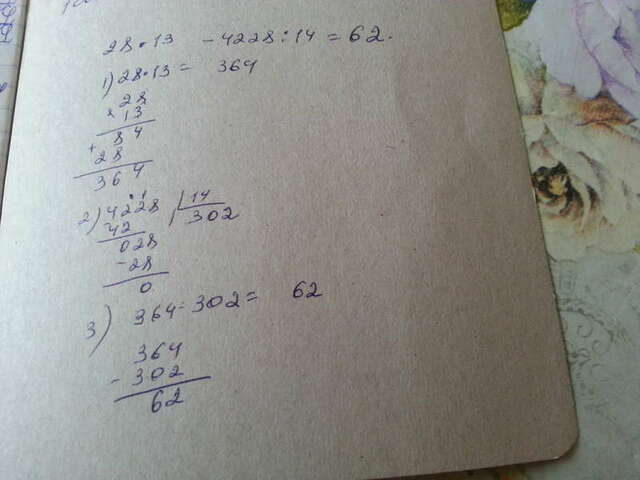 28·13 - 4228:14 = 62.
1) 28·13 = 364
28
× 13
84
+ 28
364
2) 4228 | 14
- 42 302
028
- 28
0
3) 364 - 302 = 62
364
- 302
62